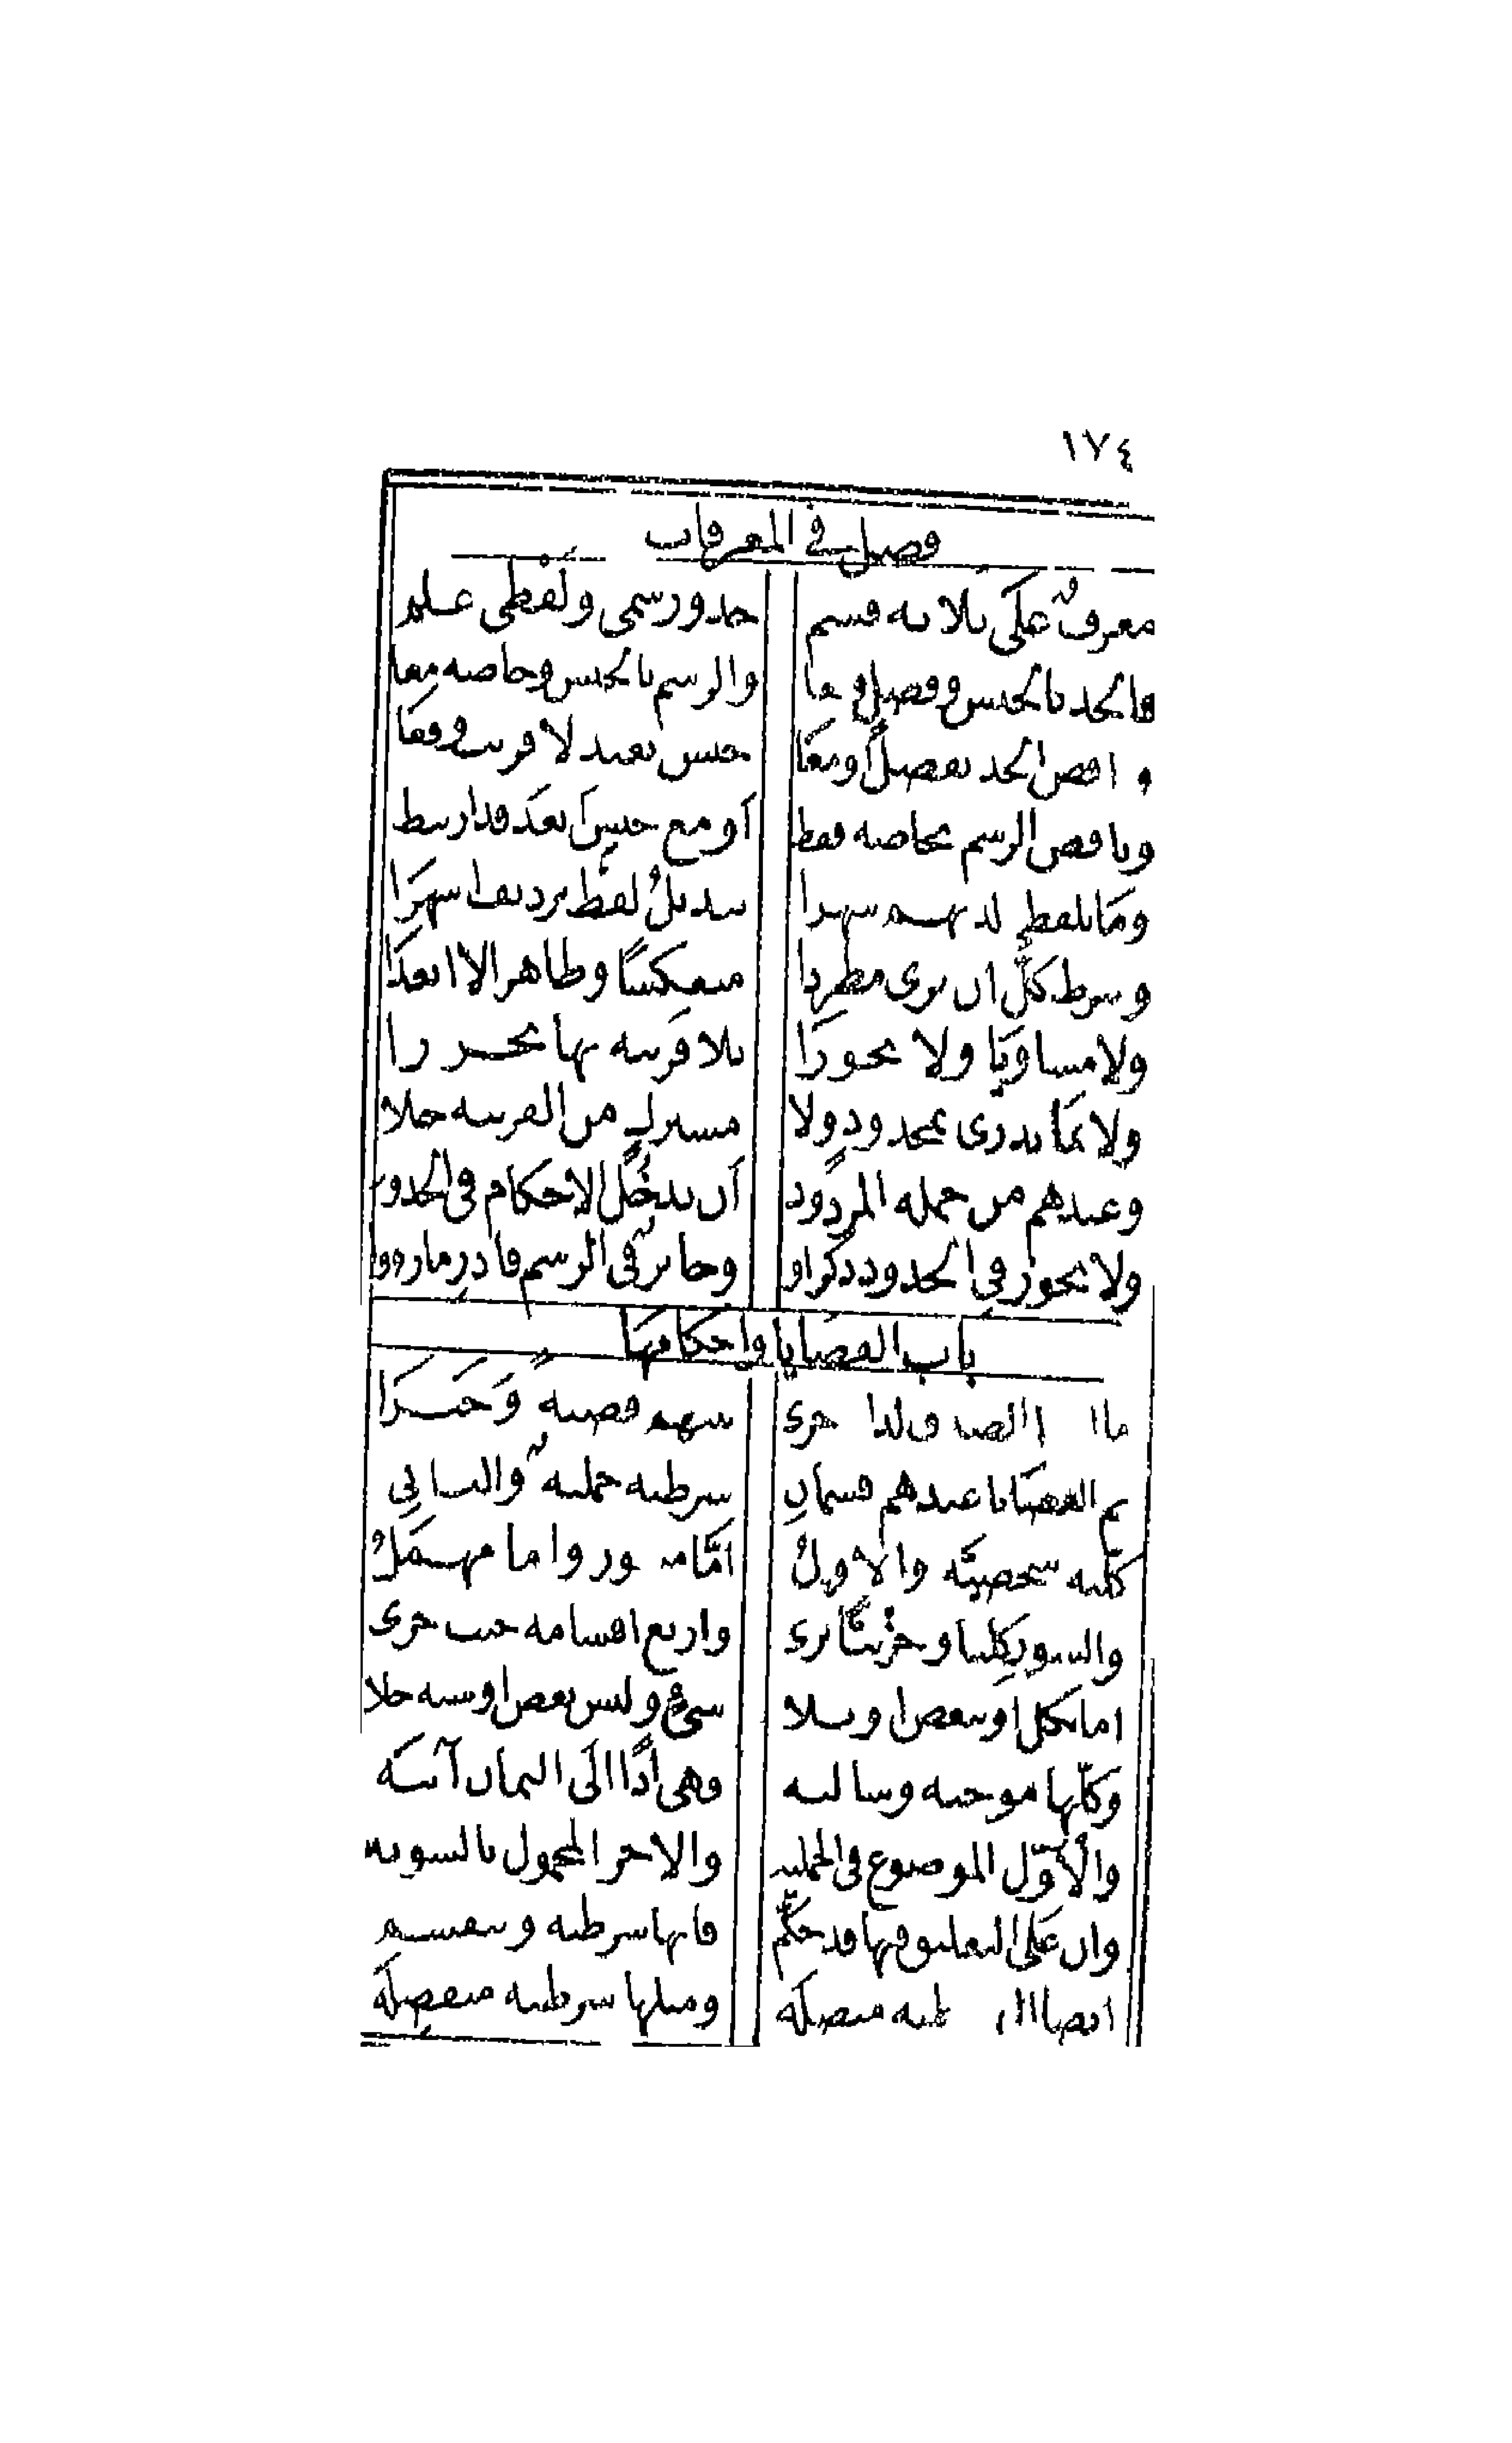 ١٧٤
فصل في المعرفات
معرف على ثلاثة قسم حد ورسمي ولفظي علم
فالحد بالجنس وفصل وقعا والرسم بالجنس وخاصة معا
وناقص الحد بفصل أو معا جنس بعيد لا قريب وقعا
وناقص الرسم بخاصة فقط أو مع جنس أبعد قد ارتبط
وما بلفظي لديهم شهرا تبديل لفظ برديف أشهرا
وشرط كل أن يرى مطردا منعكسا وظاهرا لا أبعدا
ولا مساويا ولا تجوزا بلا قرينة بها تحررا
ولا بما يدرى بمحدود ولا مشترك من القرينة خلا
وعندهم من جملة المردود أن تدخل الأحكام في الحدود
ولا يجوز في الحدود ذكر أو وجائز في الرسم فادر ما رووا
باب القضايا وأحكامها
ما احتمل الصدق لذاته جرى بينهم قضية وخبرا
ثم القضايا عندهم قسمان شرطية حملية والثاني
كلية شخصية والأول إما مسور وإما مهمل
والسور كليا وجزئيا يرى وأربع أقسامه حيث جرى
إما بكل أو ببعض أو بلا شيء وليس بعض أو شبه جلا
وكلها موجبة وسالبة فهي إذا إلى الثمان آئبة
والأول الموضوع في الحملية والآخر المحمول بالسوية
وإن على التعليق فيها قد حكم فإنها شرطية وتنقسم
أيضا إلى شرطية متصلة ومثلها شرطية منفصلة